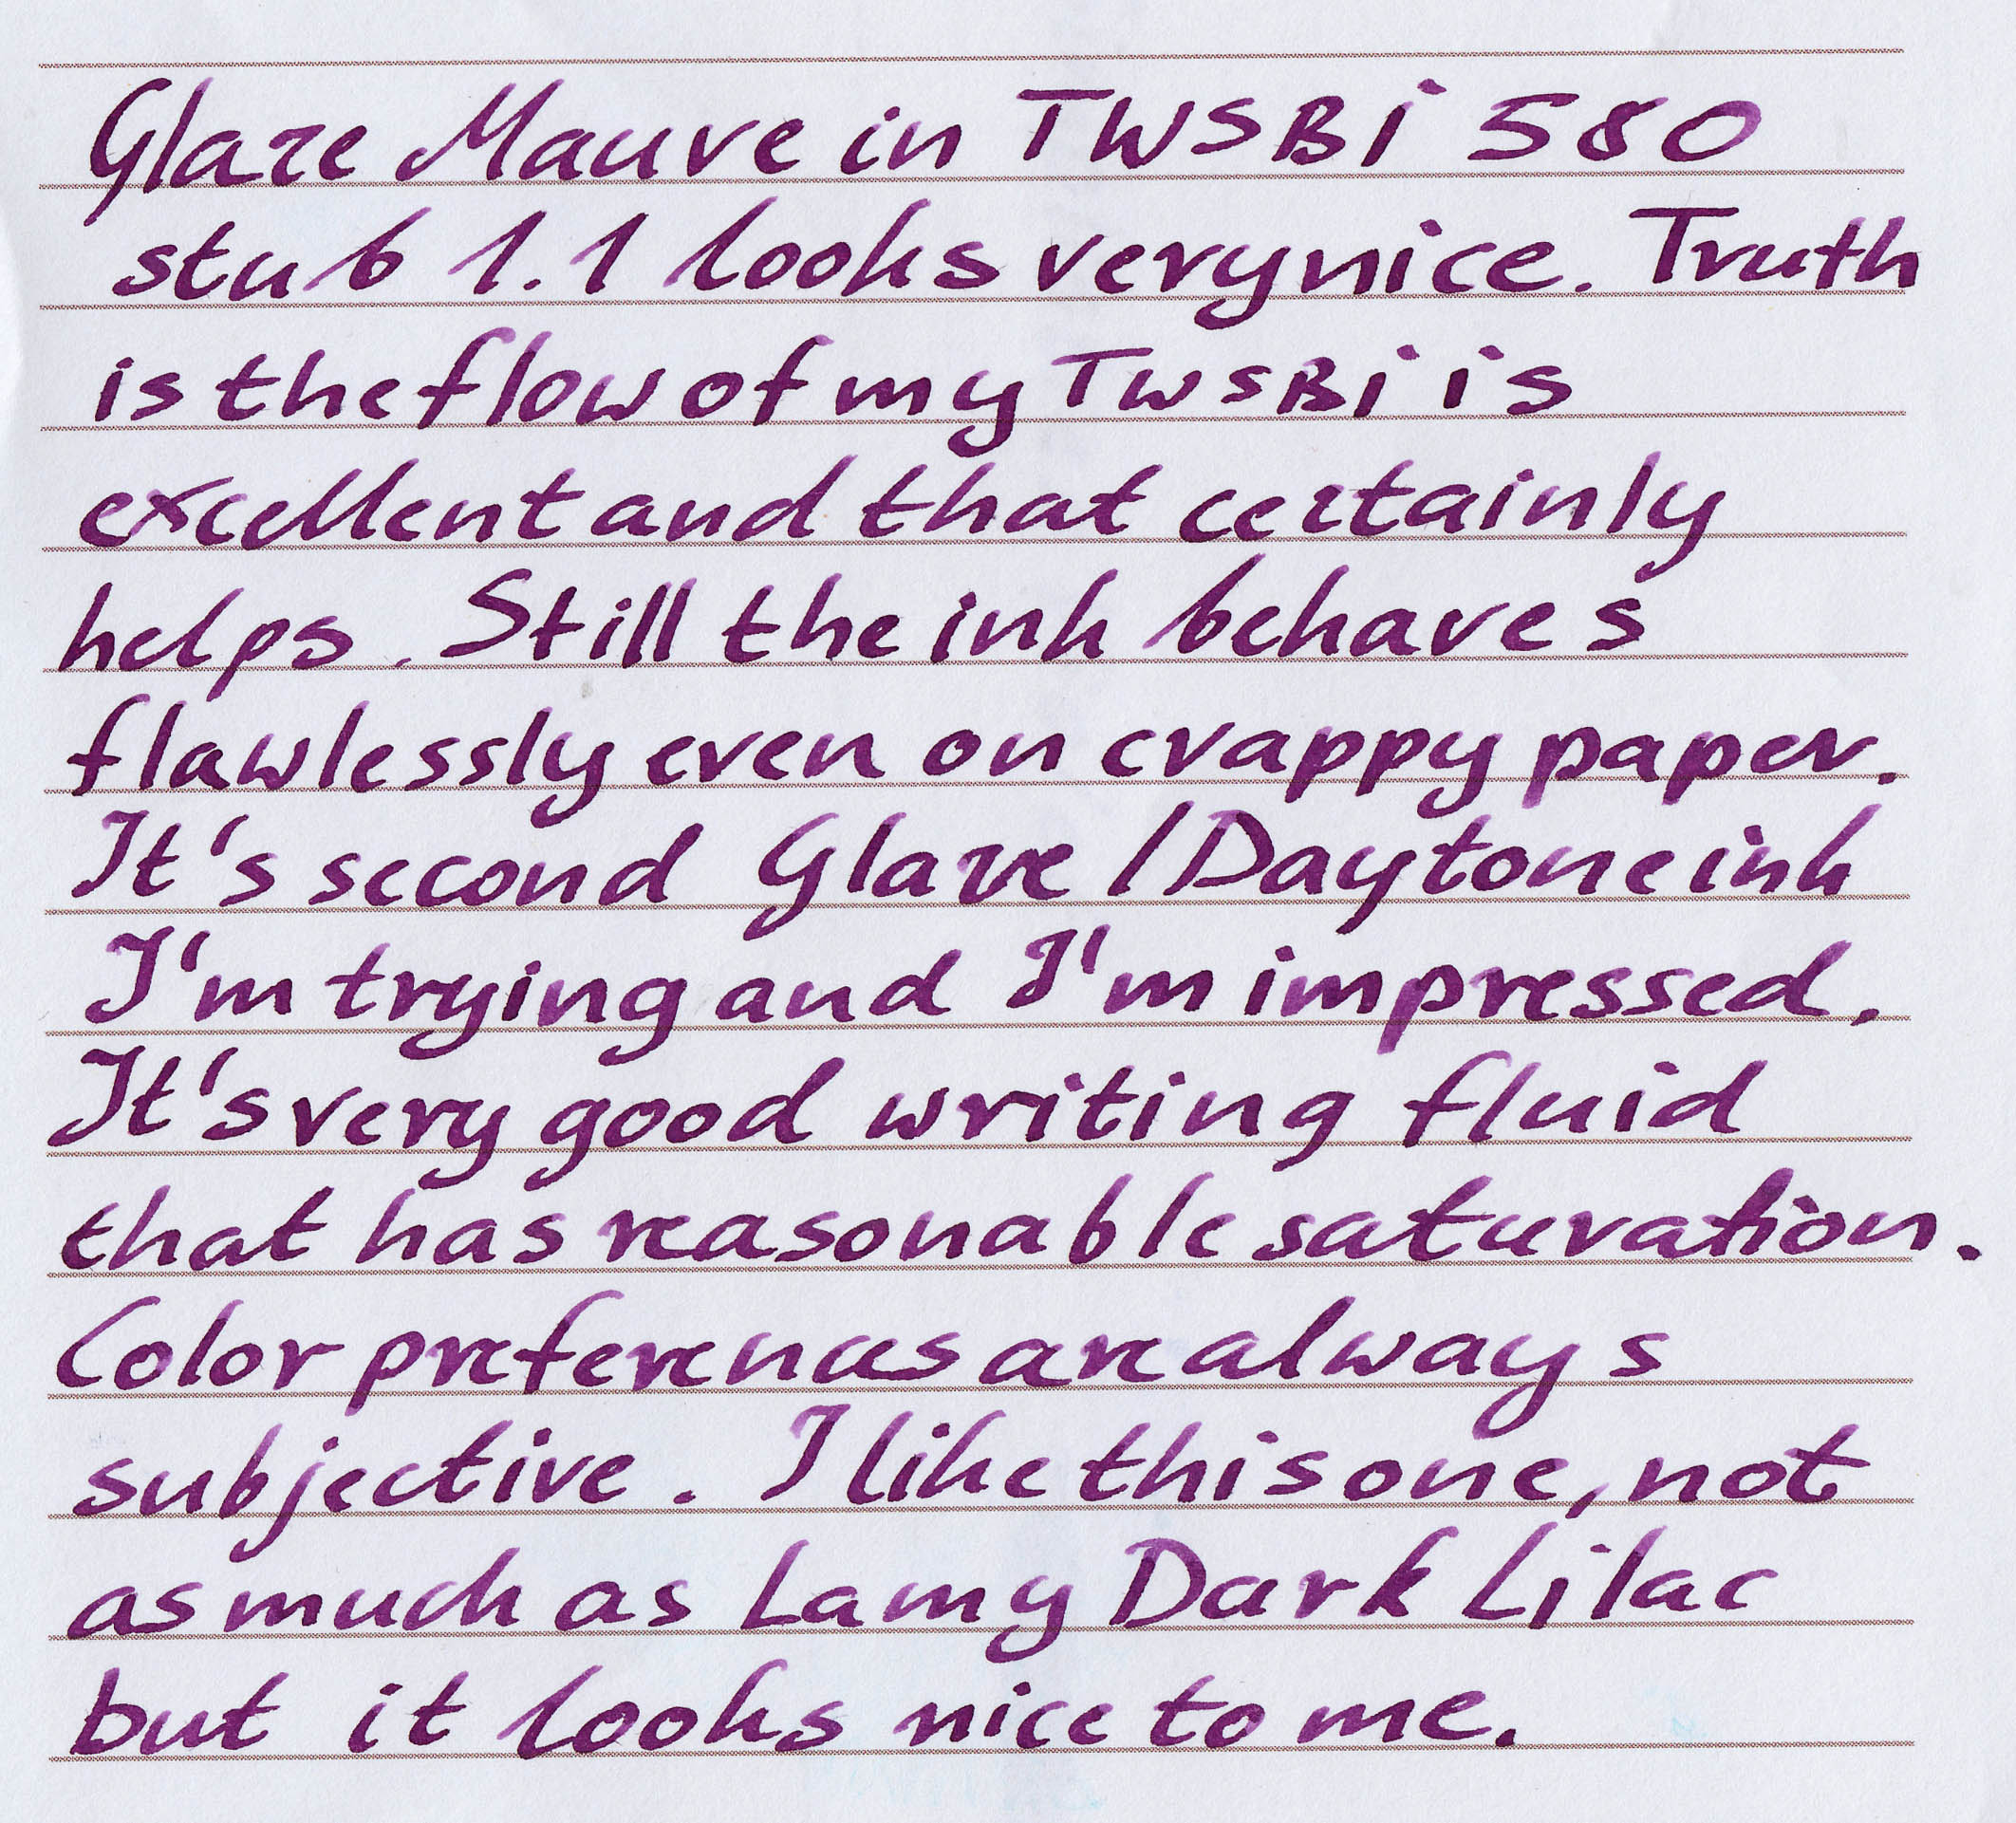 Glare Mauve in TWSBi 580
stub 1.1 looks very nice. Truth
is the flow of my TWSBi is
excellent and that certainly
helps. Still the ink behaves
flawlessly even on crappy paper.
It's second Glare / Daytone ink
I'm trying and I'm impressed.
It's very good writing fluid
that has reasonable saturation.
Color preferences are always
subjective. I like this one, not
as much as Lamy Dark Lilac
but it looks nice to me.